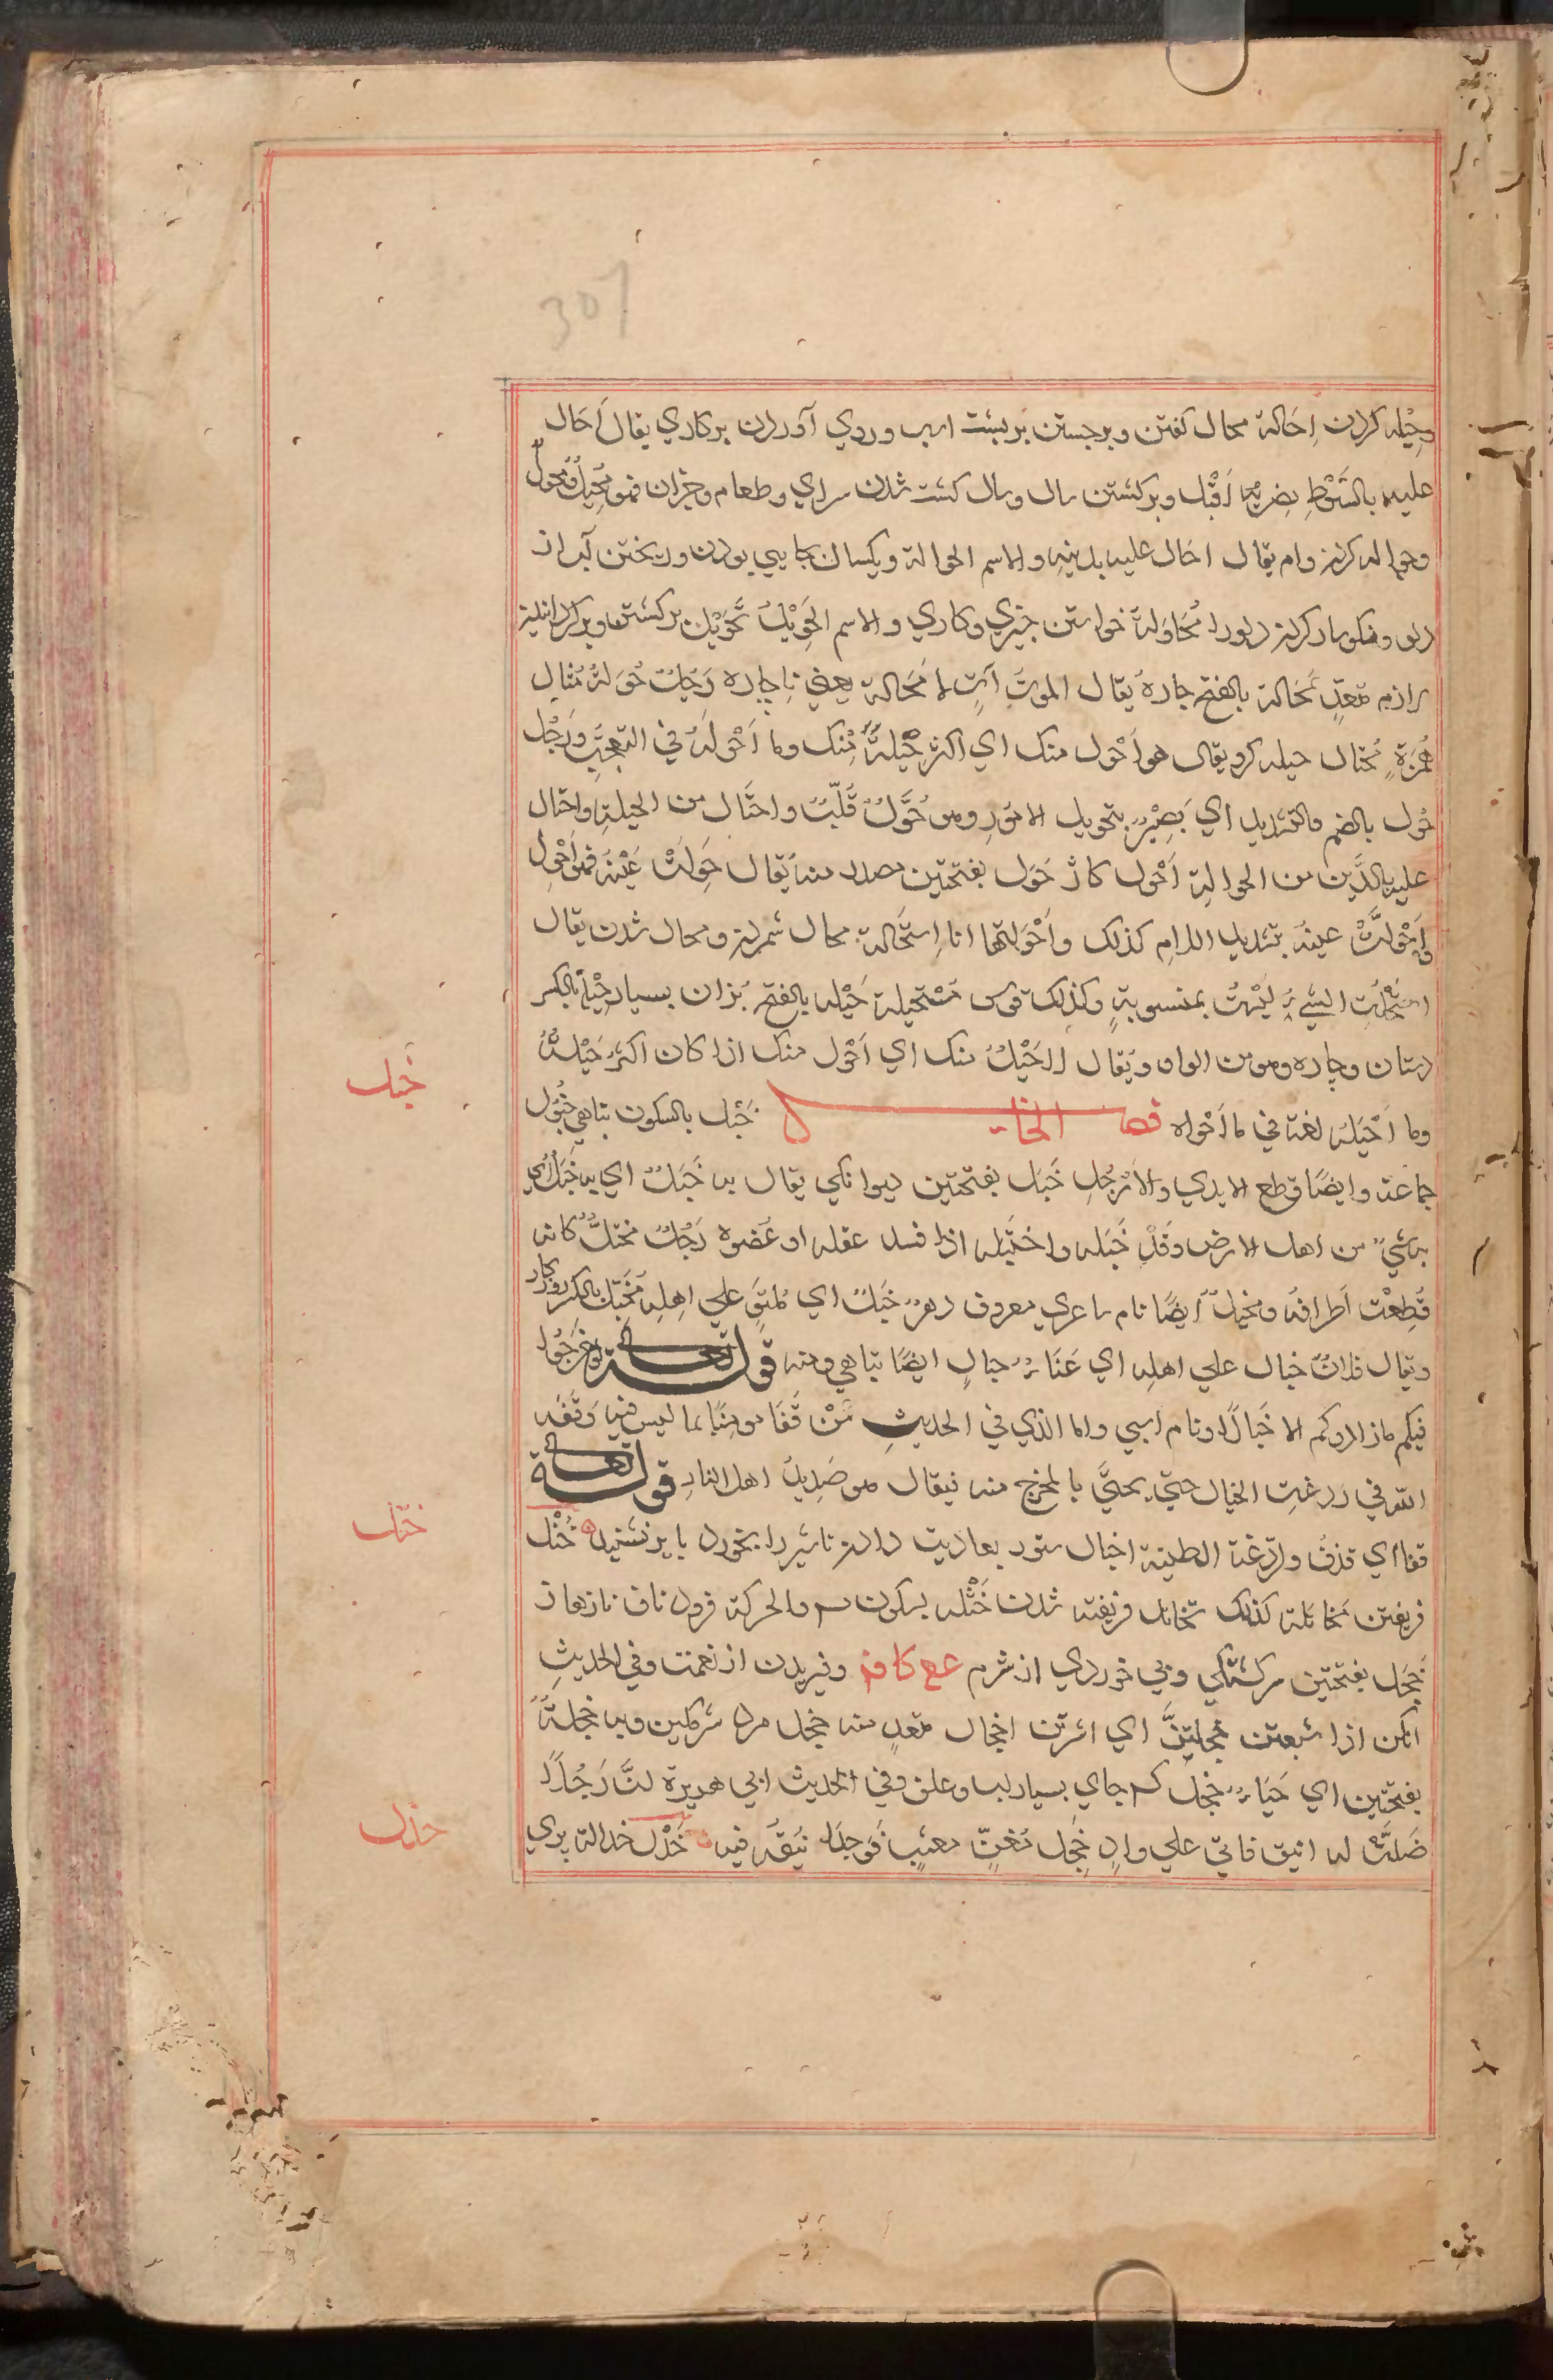 307
وحِیله کردن اِحَالة محال کفتن و برجستن بر پشت اسپ و روی آوردن بر کاري یقال اَحَال
علیه بالسَّوْطِ یضربه اَقْبَل و برکشتن سال و سال کشت شدن سرای و طعام وجزان فهو مُحِیلٌ ومُحْوِلٌ
وحواله کردن وام یقال احال علیه بدَینِهِ والاسم الحوالة و یکسان بجایی بودن و ریختن آب از
دلو و نکوسار کردن دلو را مُحَاوَلَة خواستن چیزي و کاري والاسم الحَوِیْلُ تَحْوِیْل برکشتن و برکردانیدن
لازم متعدٍ مَحَالة بالفتح چاره یُقال الموتُ آتٍ لا مَحَالة یعنی ناچاره رَجُلٌ حُوَلَةٌ مثال
هُمَزَةٍ مُحتال حیله کر ویقال هو اَحْوَل منک اي اکثر حِیْلَةً مِّنْک وما اَحْوَلَهُ في التعجبِ ورَجُل
حُوَّل بالضم والتشدید اي بَصِیْرٌ بتحویل الامُورِ وهو حُوَّلٌ قُلَّبٌ واحتَال من الحیلةِ واحتال
علیه بالدَّین من الحوالةِ اَحْوَل کاژ حَوَل بفتحتین مصدر منه یُقال حَوِلَتْ عَیْنُهُ فهو اَحْوَل
واِحْوَلَّتْ عینهُ بتشدید اللامِ کذلک واَحْوَلْتُها انا اِستِحَالة محال شمردن و محال شدن یقال
استحلتُ الشيءَ لیْسَتْ بمنسوبةٍ وکذلک قوس مُسْتحِیلة حَیْله بالفتح بُزان بسیار حِیْلَة بالکسر
دستان و چاره وهو من الواو ویُقال اَحْیَلُ منک اي اَحْوَل منک اذا کان اکثرَ حِیْلَةً
وما اَحْیَلَه لغة في ما اَحْوَله فصل الخاء خَبْل بالسکون تباهی خُبُوْل
خبل
جماعة وایضًا قطع الایدي والاَرْجُلِ خَبَل بفتحتین دیوانکی یقال به خَبَلٌ اي به
به شيءٌ من اهل الارض وقَدْ خَبَله واختَبَله اذا فسد عقله او عُضوه رَجُلٌ مختبَلٌ کانه
قُطِعَت اَطرافهُ ومُخَبَّلٌ ایضًا نام شاعري معروف دهرٌ خَبِلٌ اي مُلتوٍ علي اهلهِ مُخَبِّل بالکسر روزکار
ویقال فلانٌ خبال علي اهله اي عَنَاءٌ خبالِ ایضًا تباهی ومنه قوله تعالی لو خرجُوا
فیکم ما زادوکم الا خَبَالًا ونام اسپي واما الذي في الحدیثِ مَنْ قَفَا مومنًا بما لیس فیه وقَفَه
الله في ردغةِ الخبال حتي یجيَّ بالمخرج منه فیقال هو صَدِیدُ اهل النارِ قوله
قفا اي قذفَ والرَدغة الطینة اخبال ستور بعاریت دادن تا شیر را بخورد یا بر نشیند خَتْل
ختل
فریفتن مُخاتلة کذلک تخاتل فریفته شدن خَثْله بسکون س والحرکة فرود ناف تا زهار
خَجَل بفتحتین سرکشتکی وبی خودي از شرم عع کا فم وفیریدن از نعمت وفي الحدیثِ
انکن اذا شبعتن خجلتنَّ اي اشرتن اخجال متعد منه خجل مرد شرمکین وبه خجلةٌ
بفتحتین اي حَیَاءٌ خجِل جای بسیار لب و علف وفي الحدیث ابي هریرة انَّ رَجُلًا
ضَلَّتْ له اینق فاتي علي وادٍ خَجِل مُغِنٍّ معشِبٍ فَوجدَ اَیْنُقَه فیه خَدْل خدالة پري
خدل